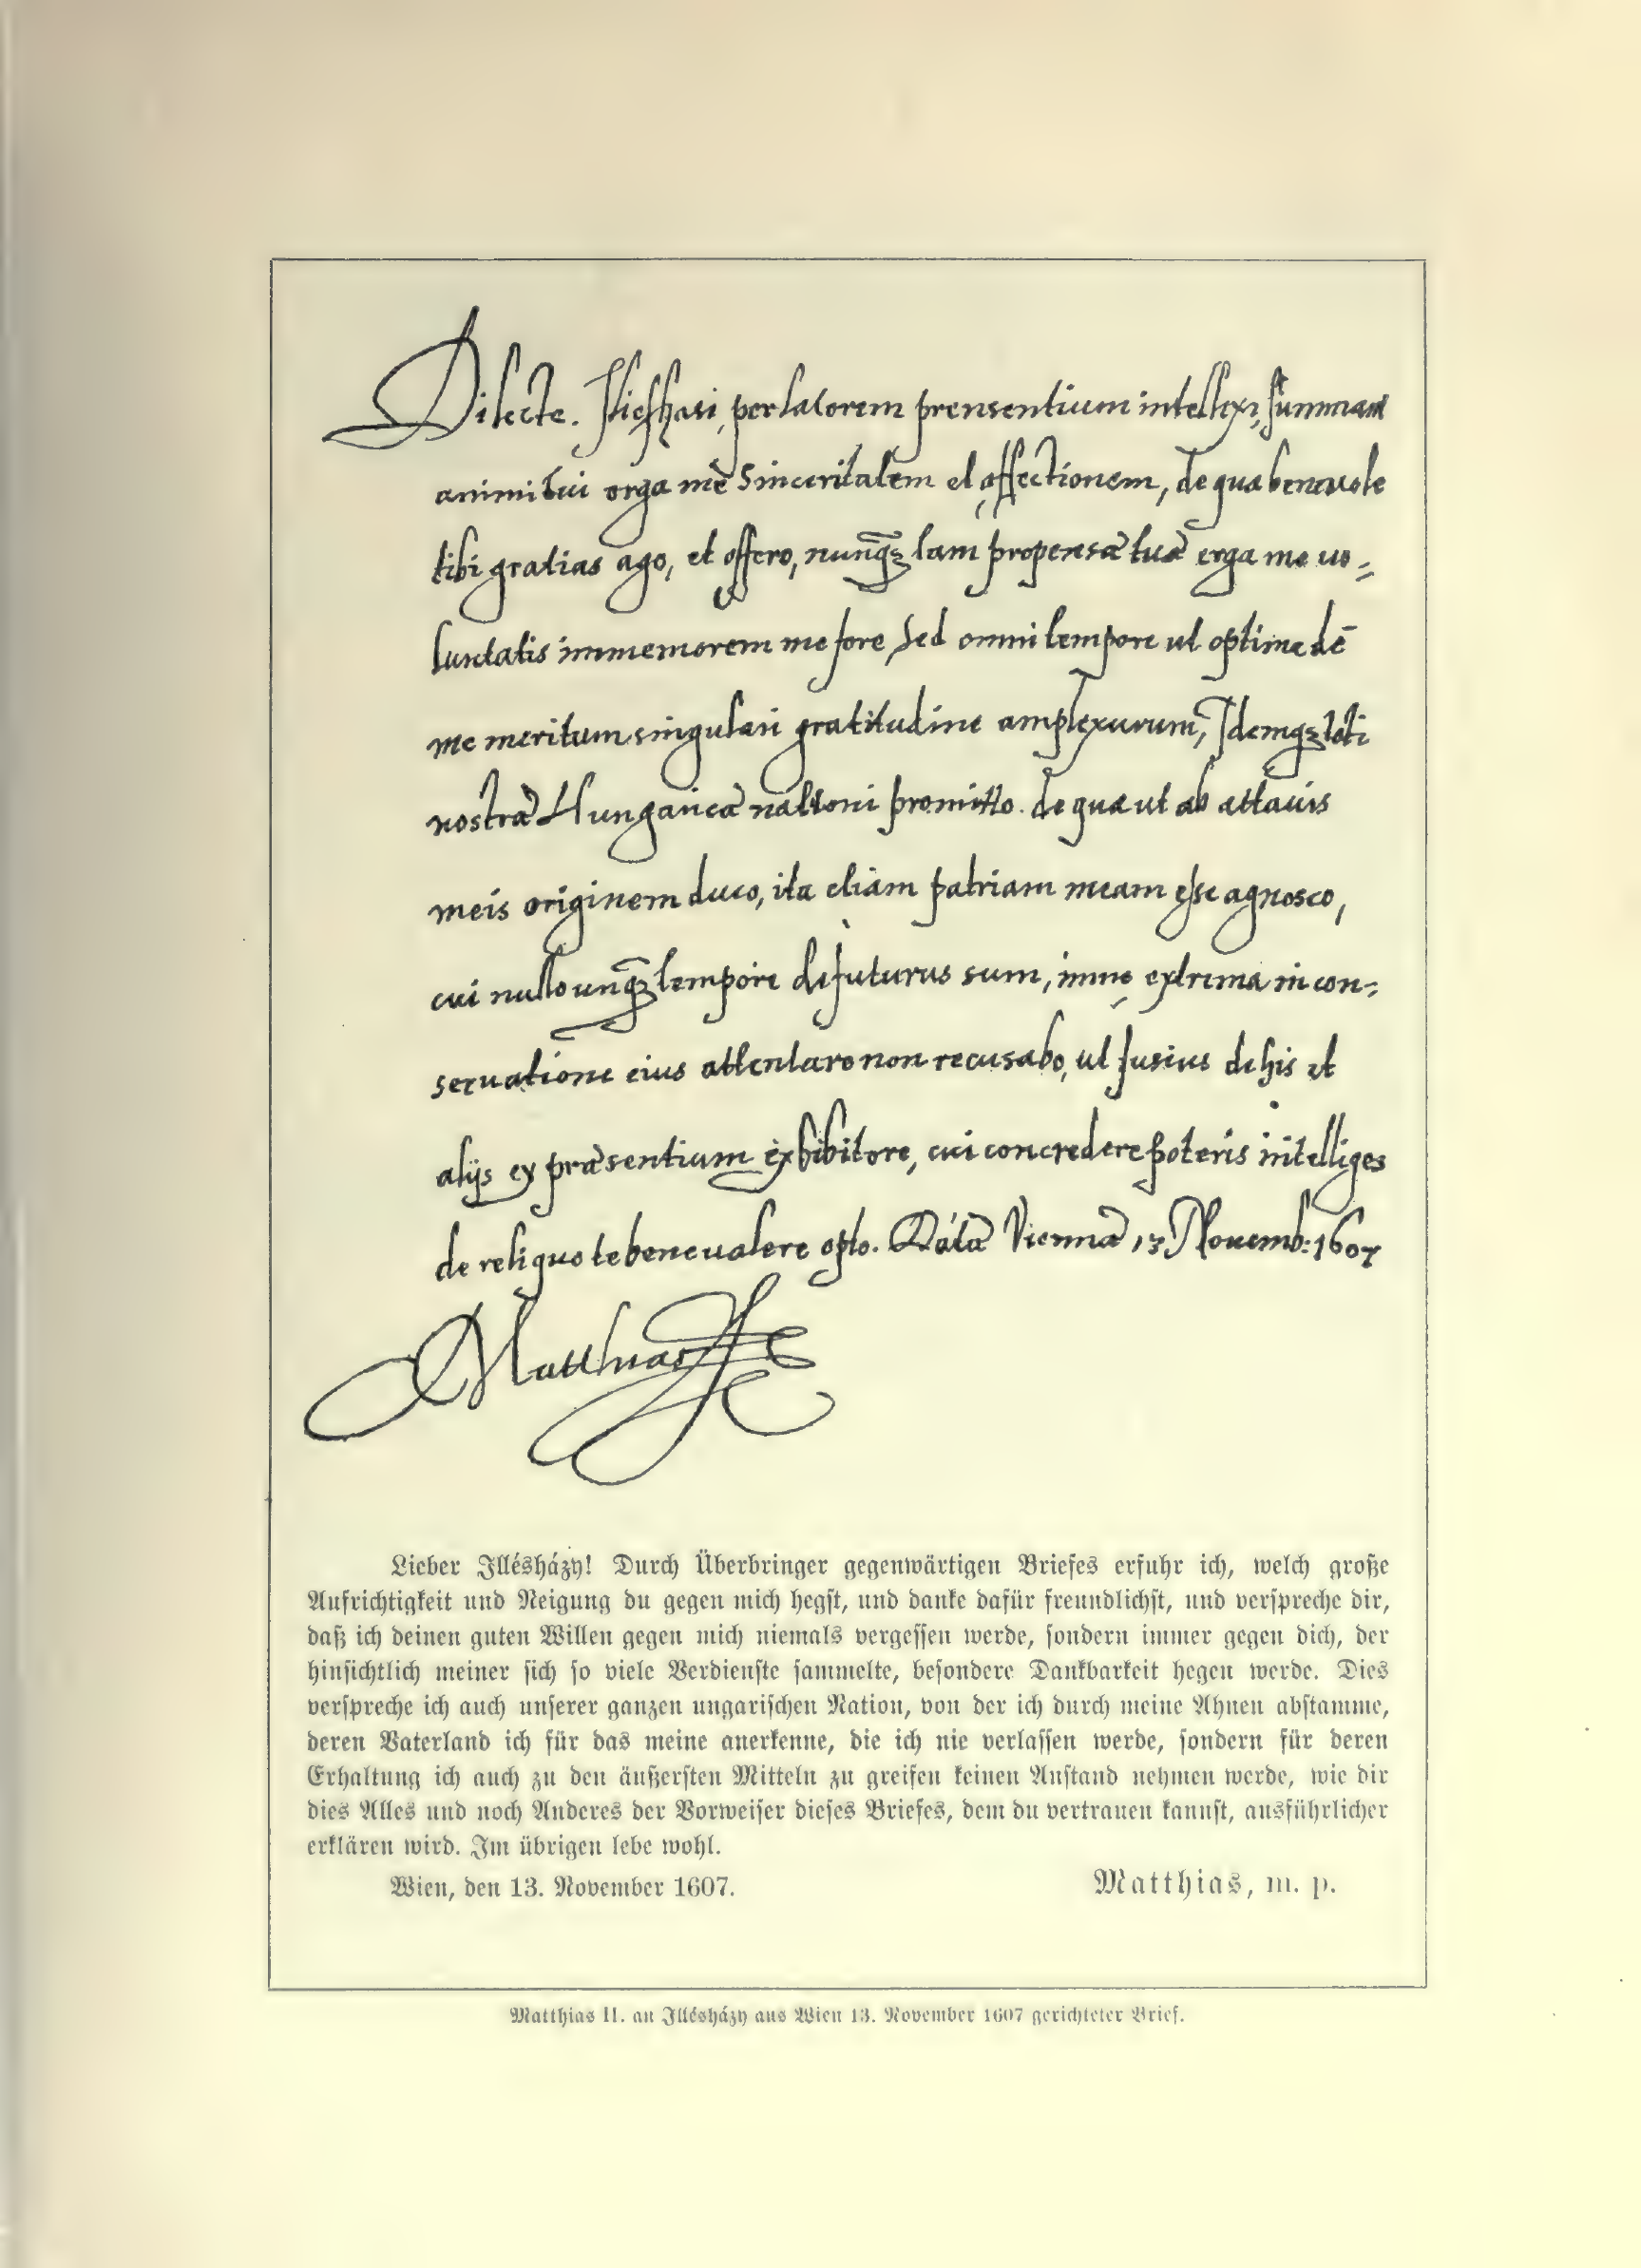 Dilecte. Ilieshasi, per latorem prensentium intellexi, summam
animi tui erga me sinceritatem et affectionem, de qua beneuole
tibi gratias ago, et offero, nunqȝ tam propensæ tuæ erga me uo=
luntatis immemorem me fore, sed omni tempore ut optime de
me meritum singulari gratitudine amplexurum, Idemqȝ toti
nostræ Hungaricæ nationi promitto. de qua ut ab attauis
meis originem duco, ita etiam patriam meam esse agnosco,
cui nullo unqȝ tempore defuturus sum, immo extrema in con=
seruatione eius attentare non recusabo, ut fusius de his et
alijs ex præsentium exhibitore, cui concredere poteris intelliges
de reliquo te bene ualere opto. Datæ Viennæ 13 Nouemb: 1607
Matthias
Lieber Illésházy! Durch Überbringer gegenwärtigen Briefes erfuhr ich, welch große
Aufrichtigkeit und Neigung du gegen mich hegſt, und danke dafür freundlichſt, und verſpreche dir,
daß ich deinen guten Willen gegen mich niemals vergeſſen werde, ſondern immer gegen dich, der
hinſichtlich meiner ſich ſo viele Verdienſte ſammelte, beſondere Dankbarkeit hegen werde. Dies
verſpreche ich auch unſerer ganzen ungariſchen Nation, von der ich durch meine Ahnen abſtamme,
deren Vaterland ich für das meine anerkenne, die ich nie verlaſſen werde, ſondern für deren
Erhaltung ich auch zu den äußerſten Mitteln zu greifen keinen Anſtand nehmen werde, wie dir
dies Alles und noch Anderes der Vorweiſer dieſes Briefes, dem du vertrauen kannſt, ausführlicher
erklären wird. Im übrigen lebe wohl.
Wien, den 13. November 1607. Matthias, m. p.
Matthias II. an Illésházy aus Wien 13. November 1607 gerichteter Brief.